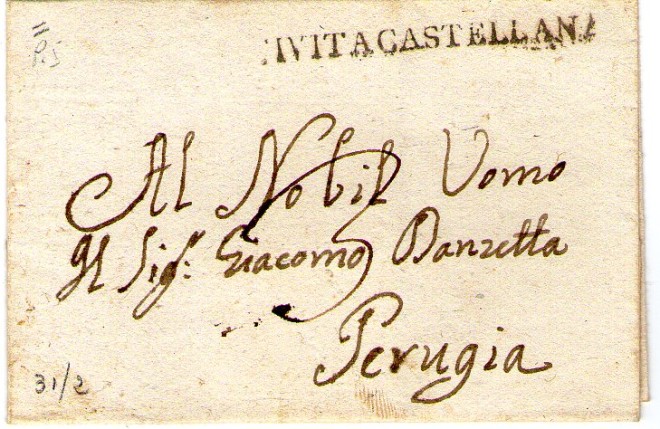 P.5
IVITACASTELLANA
Al Nobil Uomo
Il Sigr. Giacomo Danzetta
Perugia
31/2